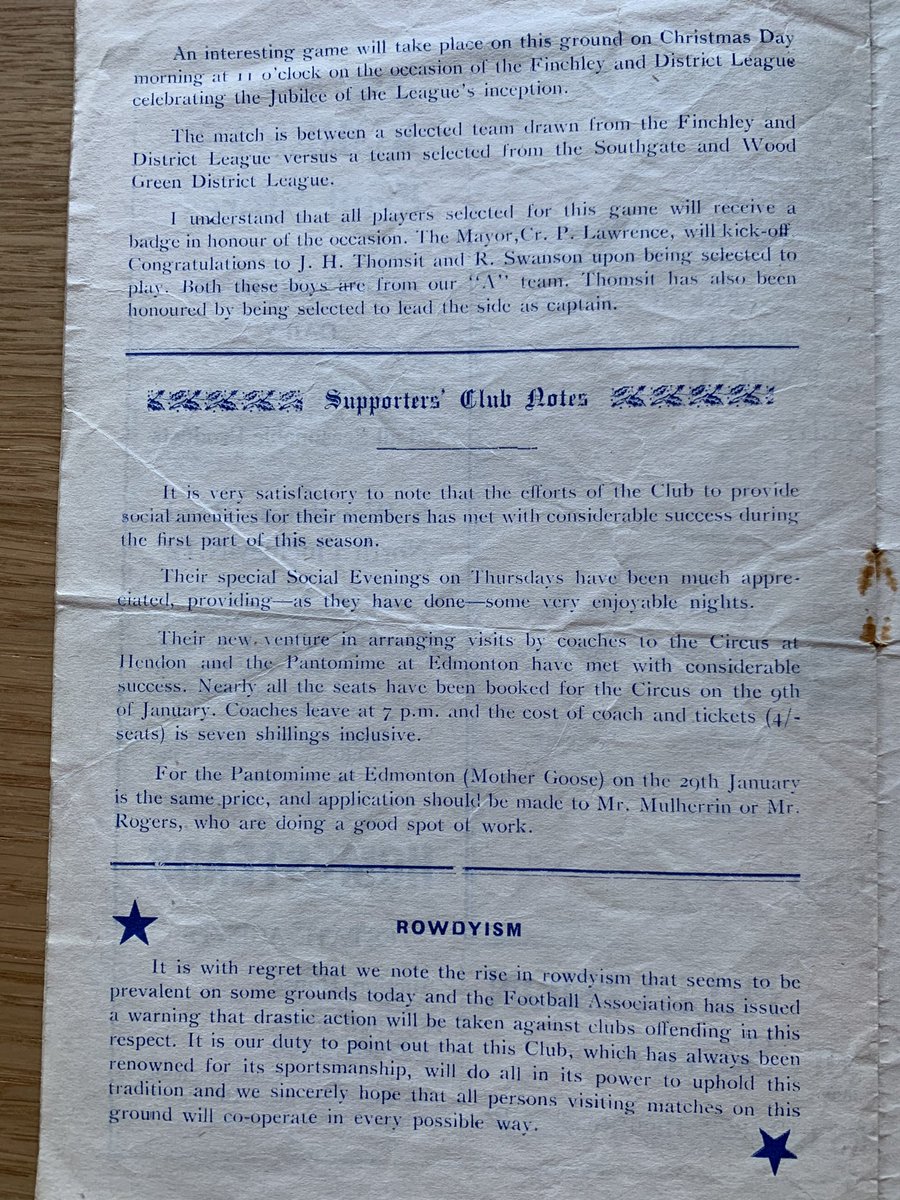 An interesting game will take place on this ground on Christmas Day
morning at 11 o'clock on the occasion of the Finchley and District League
celebrating the Jubilee of the League's inception.
The match is between a selected team drawn from the Finchley and
District League versus a team selected from the Southgate and Wood
Green District League.
I understand that all players selected for this game will receive a
badge in honour of the occasion. The Mayor,Cr. P. Lawrence, will kick-off
Congratulations to J. H. Thomsit and R. Swanson upon being selected to
play. Both these boys are from our "A" team. Thomsit has also been
honoured by being selected to lead the side as captain.
Supporters' Club Notes
It is very satisfactory to note that the efforts of the Club to provide
social amenities for their members has met with considerable success during
the first part of this season.
Their special Social Evenings on Thursdays have been much appre-
ciated, providing—as they have done—some very enjoyable nights.
Their new venture in arranging visits by coaches to the Circus at
Hendon and the Pantomime at Edmonton have met with considerable
success. Nearly all the seats have been booked for the Circus on the 9th
of January. Coaches leave at 7 p.m. and the cost of coach and tickets (4/-
seats) is seven shillings inclusive.
For the Pantomime at Edmonton (Mother Goose) on the 29th January
is the same price, and application should be made to Mr. Mulherrin or Mr.
Rogers, who are doing a good spot of work.
ROWDYISM
It is with regret that we note the rise in rowdyism that seems to be
prevalent on some grounds today and the Football Association has issued
a warning that drastic action will be taken against clubs offending in this
respect. It is our duty to point out that this Club, which has always been
renowned for its sportsmanship, will do all in its power to uphold this
tradition and we sincerely hope that all persons visiting matches on this
ground will co-operate in every possible way.